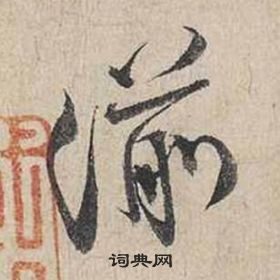 湔
词典网